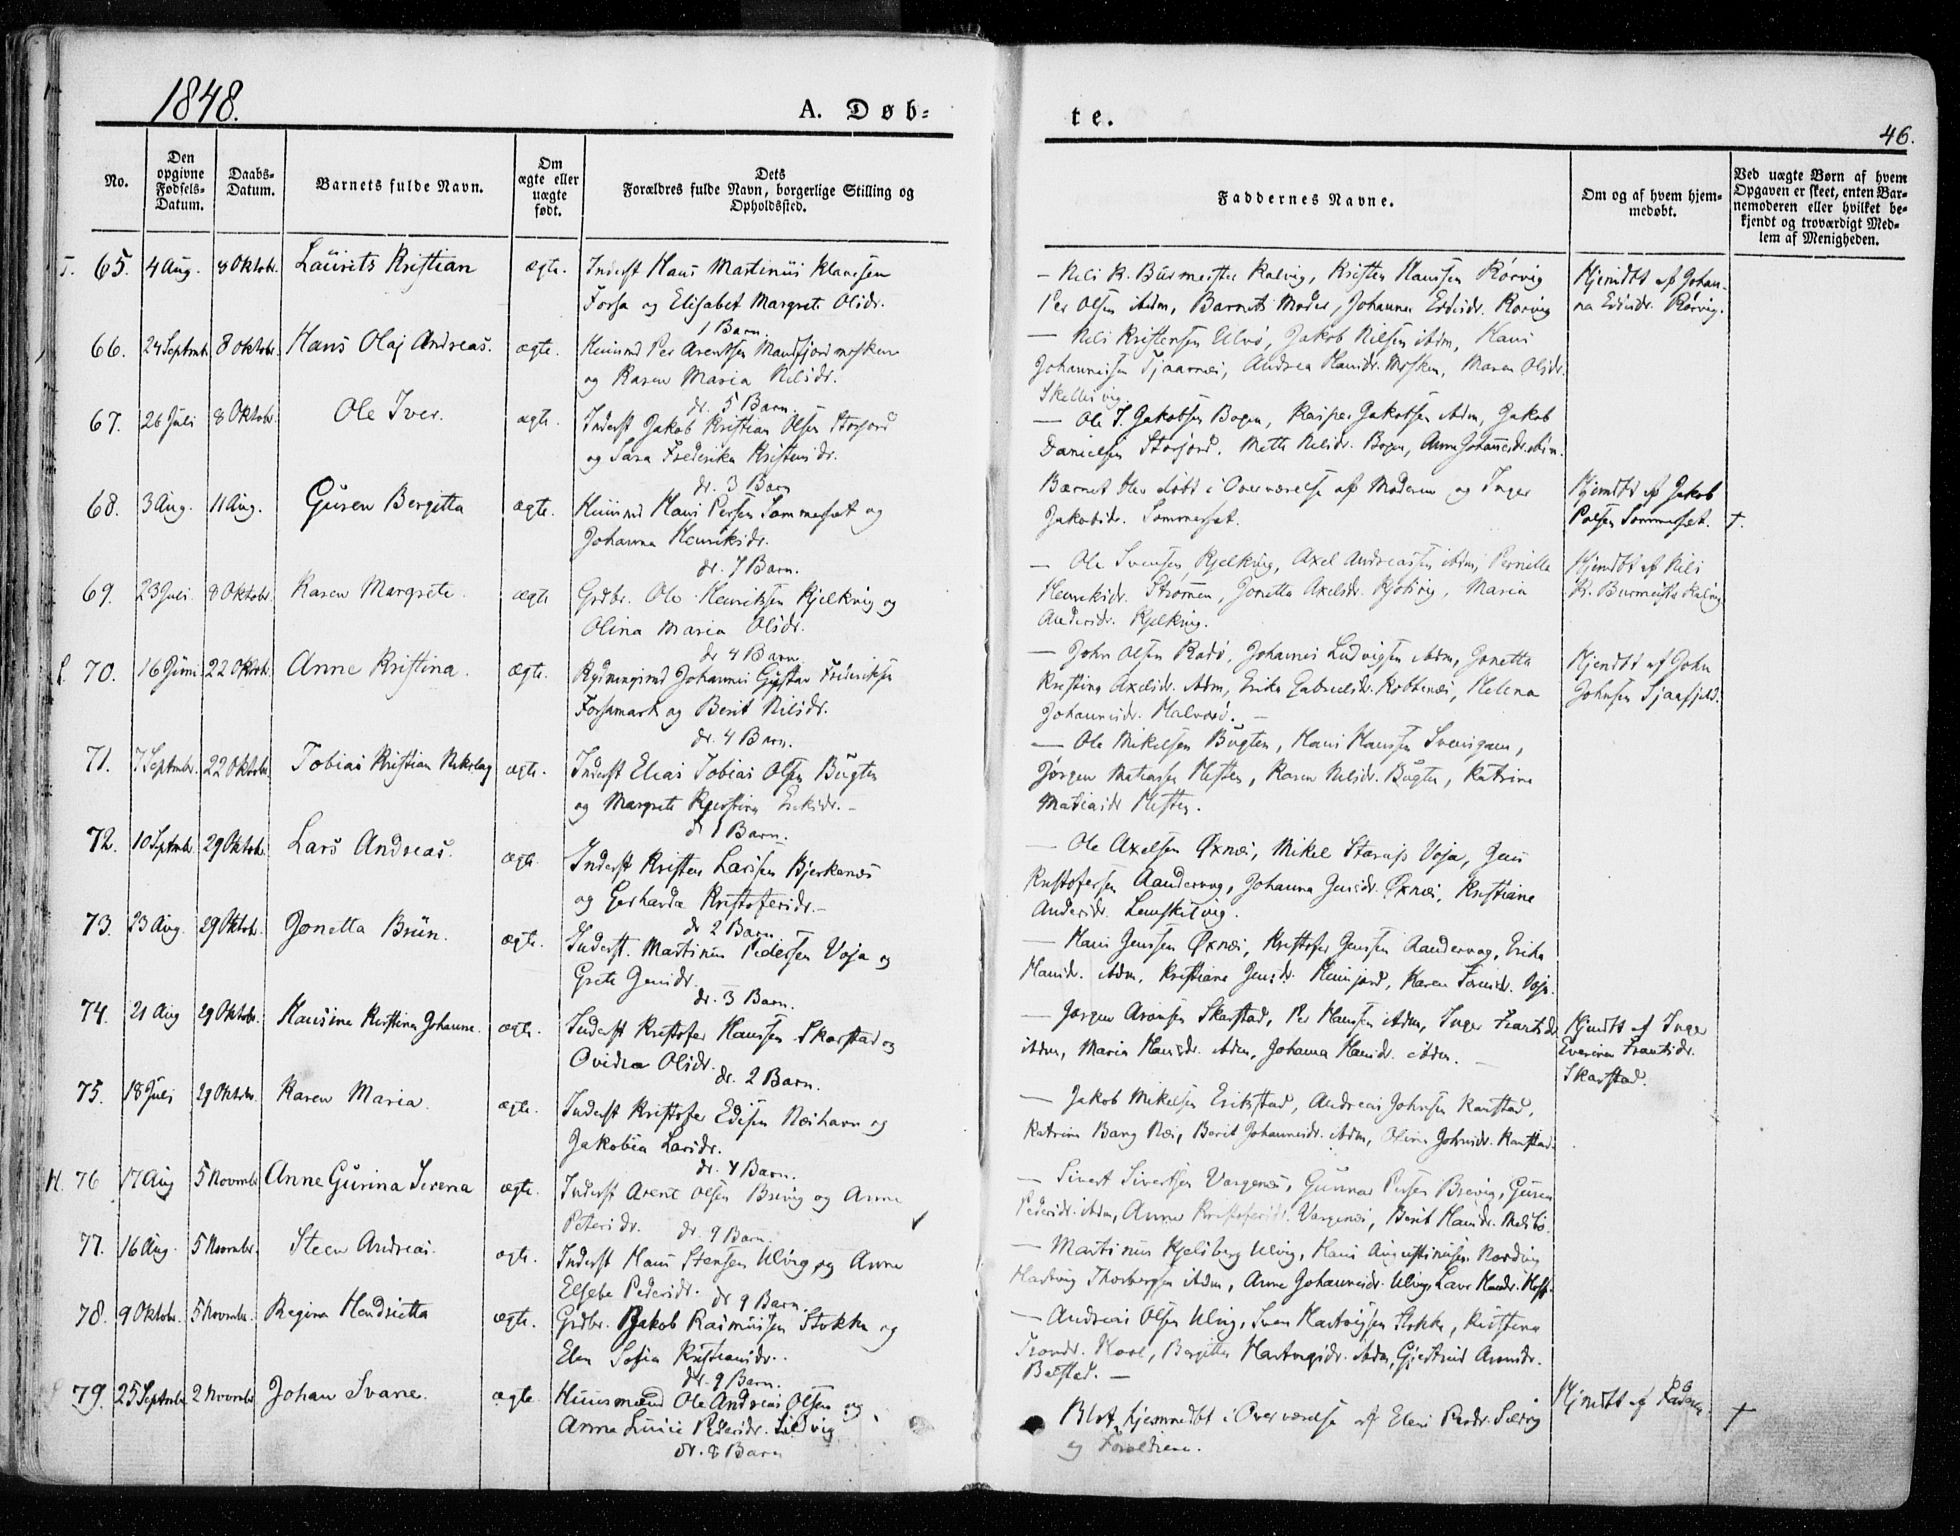 1848.
A. Døb=
te.
46.
No.
Den opgivne Fødsels-Datum.
Daabs-Datum.
Barnets fulde Navn.
Om ægte eller uægte født.
Dets Forældres fulde Navn, borgerlige Stilling og Opholdssted.
Faddernes Navne.
Om og af hvem hjemmedøbt.
Ved uægte Børn af hvem Opgaven er skeet, enten Barnemoderen eller hvilket bekjendt og troværdigt Medlem af Menigheden.
65. 4 Aug. 8 Oktobr. Laurits Kristian ægte. Inderst Hans Martinus Klausen
Forsa og Elisabet Margrete Olsdr.
1 Barn.
— Nils R. Burmester Kalvig, Kristen Hanssen Rørvig
Per Olsen ibdm, Barnets Moder, Johanna Edisdr. Rørvig
Hjemdbt af Johan-
na Edisdr. Rørvig.
66. 24 Septmbr. 8 Oktobr. Hans Olaj Andreas. ægte. Huusmd Per Arentsen Mandfjord
og Karen Maria Nilsdr.
dr. 5 Barn.
— Nils Kristensen Ulvø, Jakob Nilsen ibdm, Hans
Johannessen Tjaarnæs, Andrea Hansdr. Musken, Maren Olsdr.
67. 26 Juli 8 Oktobr. Ole Iver. ægte. Inderst Jakob Kristian Olsen Storjord
og Sara Frederika Kristensdr.
dr. 3 Barn
— Ole I. Jakobsen Bogen, Kasper Jakobsen ibdm, Jakob
Danielsen Storjord. Mette Nilsdr. Bogen, Anne Johannesdr. ibdm.
68. 3 Aug. 11 Aug. Guren Bergitta ægte. Huusmd Hans Persen Sommerset og
Johanna Henriksdr.
dr. 7 Barn.
Barnet blev døbt i Overværelse af Moderen og Inger
Jakobsdr. Sommerset.
Hjemdbt af Jakob
Palsen Sommerset. †.
69. 23 Juli 8 Oktobr. Karen Margrete. ægte Grdbr. Ole Henriksen Kjelkvig og
Olina Maria Olsdr.
dr 4 Barn.
— Ole Svensen Kjelkvig, Axel Andreassen ibdm, Pernille
Henriksdr. Strømmen, Jonetta Axelsdr. Maria
Andersdr. Kjelkvig.
Hjemdbt af Nils
R. Burmester Kalvig
70. 16 Juni 22 Oktobr. Anne Kristina. ægte. Rydningsmd Johannes Gustav Frederiksen
Forsamark og Berit Nilsdr.
dr. 4 Barn.
— John Olsen Radø, Johannes Ludvigsen ibdm, Jonetta
Kristina Axelsdr. ibdm, Erika Gabrielsdr. Kobbenæs, Helena
Johannesdr. Halvarø. —
Hjemdbt af John
Johnsen
71. 7 Septmbr. 22 Oktobr. Tobias Kristian Nikolaj ægte. Inderst Elias Tobias Olsen Bugten
og Margrete Kjerstina Eriksdr. —
dr 1 Barn.
— Ole Mikelsen Bugten, Hans Hanssen Svensgam,
Jørgen Matiassen Hesten, Karen Nilsdr. Bugten, Katrina
Matiasdr Hesten.
72. 10 Septmbr. 29 Oktobr. Lars Andreas. ægte. Inderst Kristen Larssen Bjerkenæs
og Gerharda Kristofersdr. —
dr 2 Barn.
— Ole Axelsen Øxnæs, Mikel Staup Voja, Jens
Kristofersen Aandervag, Johanna Jensdr. Øxnæs, Kristiane
Andersdr.
73. 23 Aug. 29 Oktobr. Jonetta Brün. ægte. Inderst. Martinus Pedersen Voja og
Grete Jensdr.
dr. 3 Barn.
— Hans Jenssen Øxnæs, Kristofer Jenssen Aandervag, Erika
Hansdr. ibdm. Kristiane Jensdr. Karen
74. 21 Aug 29 Oktobr. Hansine Kristina Johanne. ægte. Inderst Kristofer Hanssen Skarstad og
Ovidia Olsdr.
dr. 2 Barn.
— Jørgen Aronsen Skarstad, Per Hanssen ibdm, Inger Frantsdr
ibdm, Maria Hansdr. ibdm, Johanna Hansdr. ibdm. —
Hjemdbt af Inger
Frantsdr.
Skarstad.
75. 18 Juli 29 Oktobr. Karen Maria. ægte. Inderst Kristofer Edisen Næshavn og
Jakobia Larsdr.
dr. 4 Barn.
— Jakob Mikelsen Erikstad, Andreas Johnsen Karstad,
Katrina Bang Næs, Berit Johannesdr. ibdm, Olina Johnsdr. Karstad.
H. 76 17 Aug 5 Novmbr Anne Gurina Serena ægte. Inderst Arent Olsen Brevig og Anne
Petersdr. dr. 9 Barn.
— Sivert Sivertsen Vargenæs, Gunnar Persen Brevig, Guren
Pedersdr. ibdm, Anne Kristofersdr. Vargenæs, Berit Hansdr.
77. 16 Aug. 5 Novmbr. Steen Andreas. ægte. Inderst Hans Stensen Ulvig og Anne
Elsebe Pedersdr. dr 9 Barn.
— Martinus Kjelsberg Ulvig, Hans Augustinusen
Hartvig Thorbergsen ibdm, Anne Johannesdr. Ulvig,
78. 9 Oktobr. 5 Novmbr. Regina Hendrietta ægte. Grdbr. Jakob Rasmussen Stokke og
Elen Sofia Kristiansdr.
dr. 9 Barn.
— Andreas Olsen Ulvig, Sven Hartvigsen Stokke, Kristina
Bergitte Hartvigsdr. ibdm, Gjertrud Aronsdr.
Balstad. —
79. 25 Septmbr 2 Novmbr Johan Svane. ægte Huusmand Ole Andreas Olsen og
Anna Lucie Pedersdr. Sildvig
dr. 8 Barn
Blot hjemmedbt i Overværelse af Elen Pedr. Sildvig
og Forældrene.
Hjemdbt af †